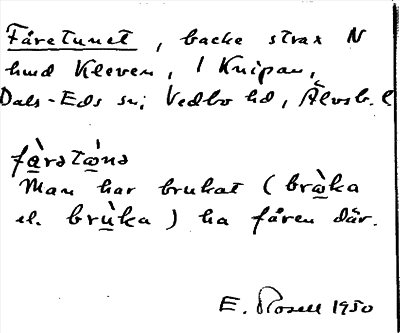 Fåretunet, backe strax N
hmd Kleven, 1 Knipan,
Dals-Eds sn; Vedbo hd, Älvsb. l
få̀rətω̲nə
Man har brukat (brὼ̲ka
el. brù̲ka) ha fåren där.
E. Rosell 1950